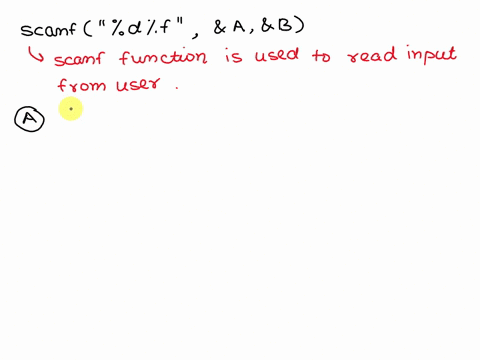 scanf ( " % d % f " , & A, & B )
↳ scanf function is used to read input
from user .
A